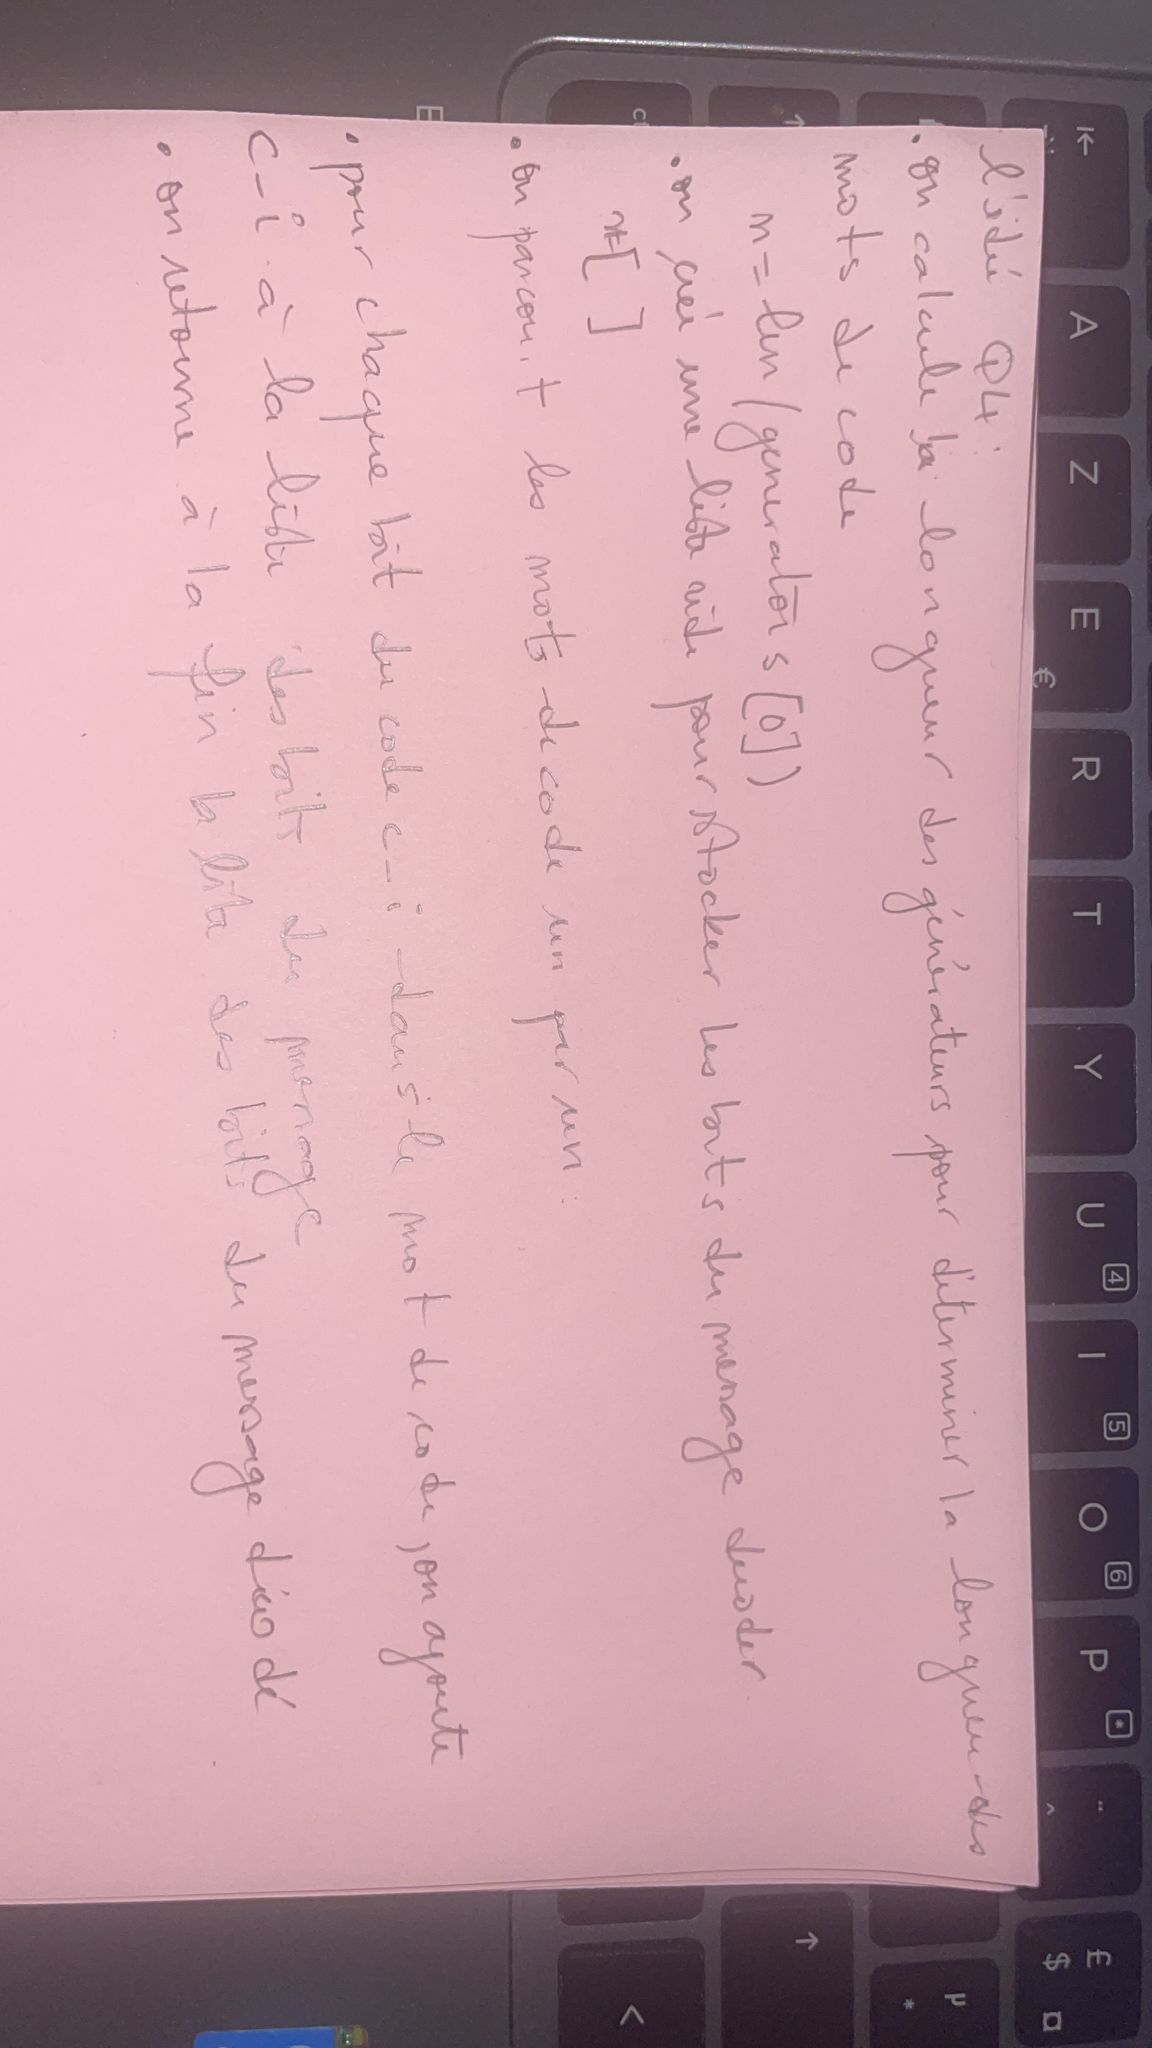 l'idé Q4:
. on calcule la longueur des générateurs pour déterminer la longueur des
mots de code
n = len(generators[0])
. on créé une liste vide pour stocker les bits du message decoder.
x[ ]
. on parcourit les mots de code un par un :
. pour chaque bit du code c-i dans le mot de code, on ajoute
c-i à la liste des bits du message
. on retourne à la fin la liste des bits du message décodé
A
Z
E €
R
T
Y
U 4
I 5
O 6
P *
¨ ^
£ $ ¤
µ *
<